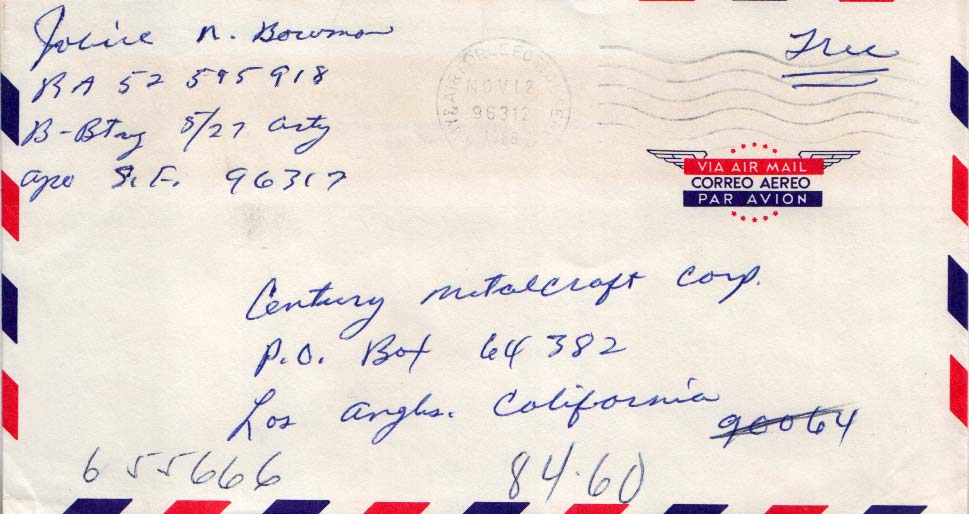 N. Bowman
RA 52 595 918
B-Btry 5/27 Arty
APO S.F. 96317
Free
AIR FORCE
NOV 12
96312
1966
VIA AIR MAIL
CORREO AEREO
PAR AVION
Century Metalcraft Corp.
P.O. Box 64382
Los Angles. California
90064
655666
84.60